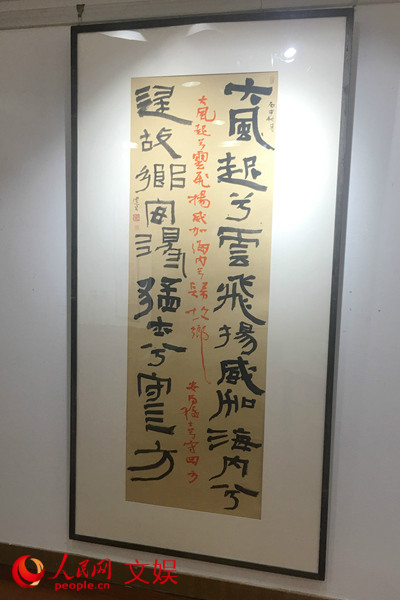 大風起兮雲飛揚威加海内兮
大風起兮雲飛揚威加海内兮歸故鄉
安得猛士兮守四方
歸故鄉安得猛士兮守亖方
人民网 文娱
people.cn